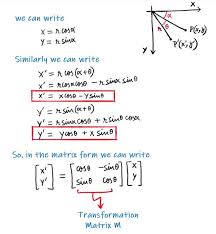 we can write
x = r cosα
y = r sinα
Similarly we can write
x' = r cos(α+θ)
x' = r cosα cosθ - r sinα sinθ
x' = x cosθ - y sinθ
y' = r sin(α+θ)
y' = r sinα cosθ + r sinθ cosα
y' = y cosθ + x sinθ
So, in the matrix form we can write
[x' y'] = [cosθ -sinθ sinθ cosθ] [x y]
Transformation
Matrix M
x
y
α
θ
r
P(x,y)
P'(x',y')